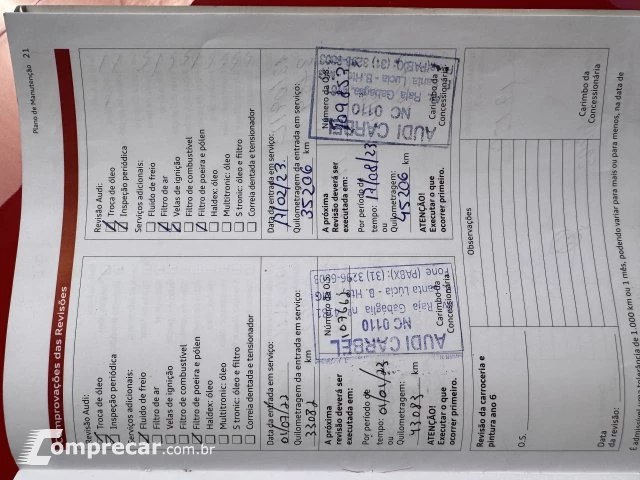 Plano de Manutenção 21
Comprovações das Revisões
Revisão Audi:
Troca de óleo
Inspeção periódica
Serviços adicionais:
Fluido de freio
Filtro de ar
Velas de ignição
Filtro de combustível
Filtro de poeira e pólen
Haldex: óleo
Multitronic: óleo
S tronic: óleo e filtro
Correia dentada e tensionador
Data da entrada em serviço:
Quilometragem da entrada em serviço:
33082 km
A próxima
Revisão deverá ser
executada em:
Por período de
tempo:
ou
Quilometragem:
43083 km
ATENÇÃO!
Executar o que
ocorrer primeiro.
Número da O.S.
AUDI CARBEL
NC 0110
Raja Gabaglia nº
Santa Lucia - B. Hte
Fone (PABX): (31) 3296-
Carimbo da
Concessionária
Revisão Audi:
Troca de óleo
Inspeção periódica
Serviços adicionais:
Fluido de freio
Filtro de ar
Velas de ignição
Filtro de combustível
Filtro de poeira e pólen
Haldex: óleo
Multitronic: óleo
S tronic: óleo e filtro
Correia dentada e tensionador
Data da entrada em serviço:
17/02/23
Quilometragem da entrada em serviço:
35206 km
A próxima
Revisão deverá ser
executada em:
Por período de
tempo: 17/08/23
ou
Quilometragem:
45206 km
ATENÇÃO!
Executar o que
ocorrer primeiro.
Número da O.S.
AUDI CARBEL
NC 0110
Raja Gabaglia
Santa Lucia - B. Hte
(PABX): (31) 3296-
Carimbo da
Concessionária
Revisão da carroceria e
pintura ano 6
O.S.
Data
da revisão:
Observações
Carimbo da
Concessionária
de 1.000 km ou 1 mês, podendo variar para mais ou para menos, na data de
Comprecar.com.br